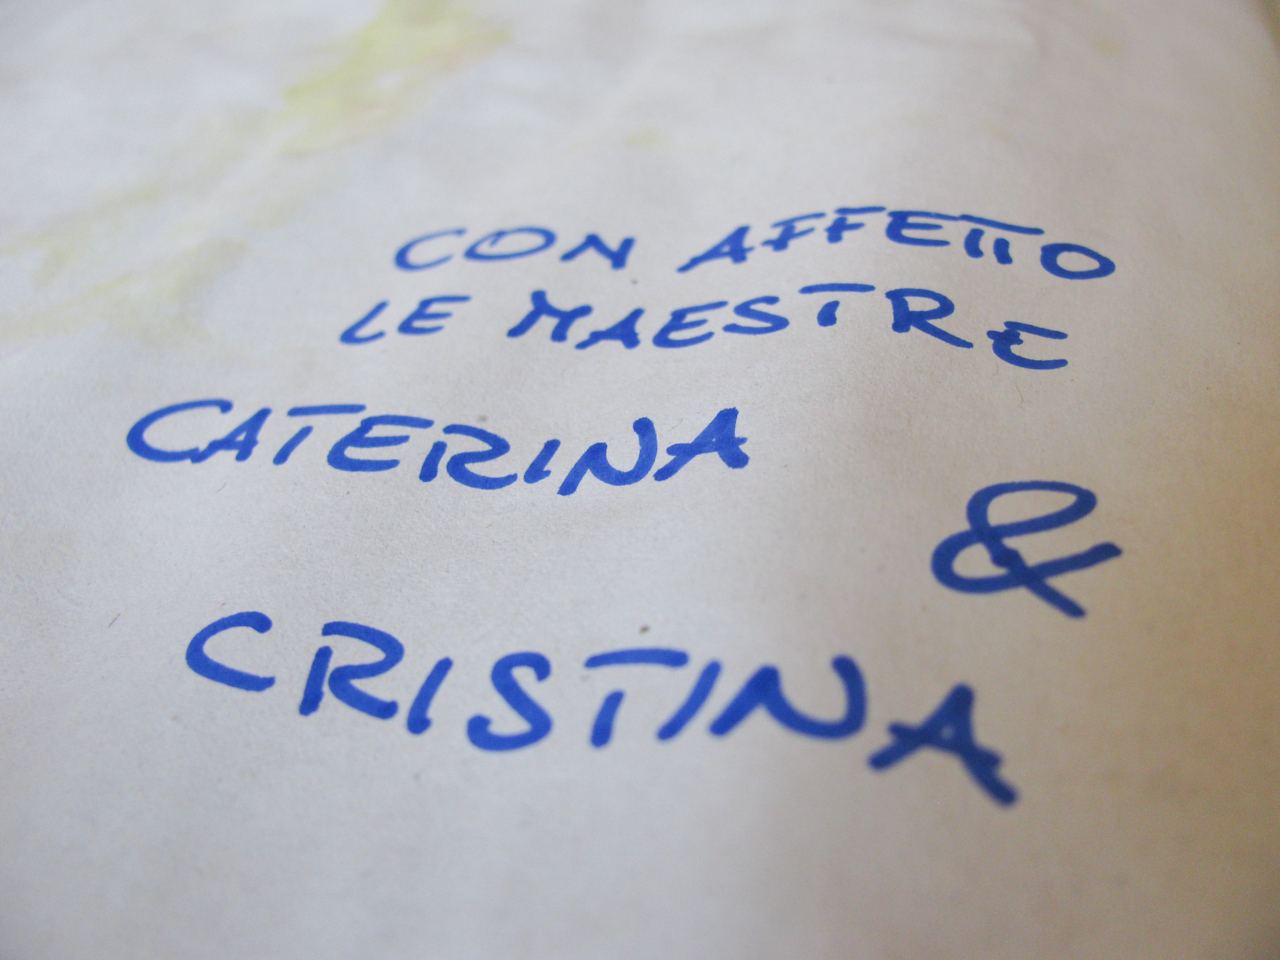 CON AFFETTO
LE MAESTRE
CATERINA
&
CRISTINA